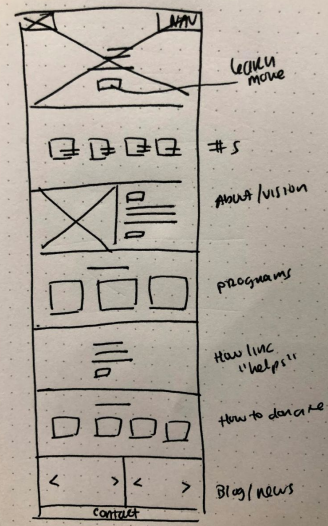 NAV
learn
more
#s
About/vision
programs
How linc
"helps"
How to donate
Blog/news
contact